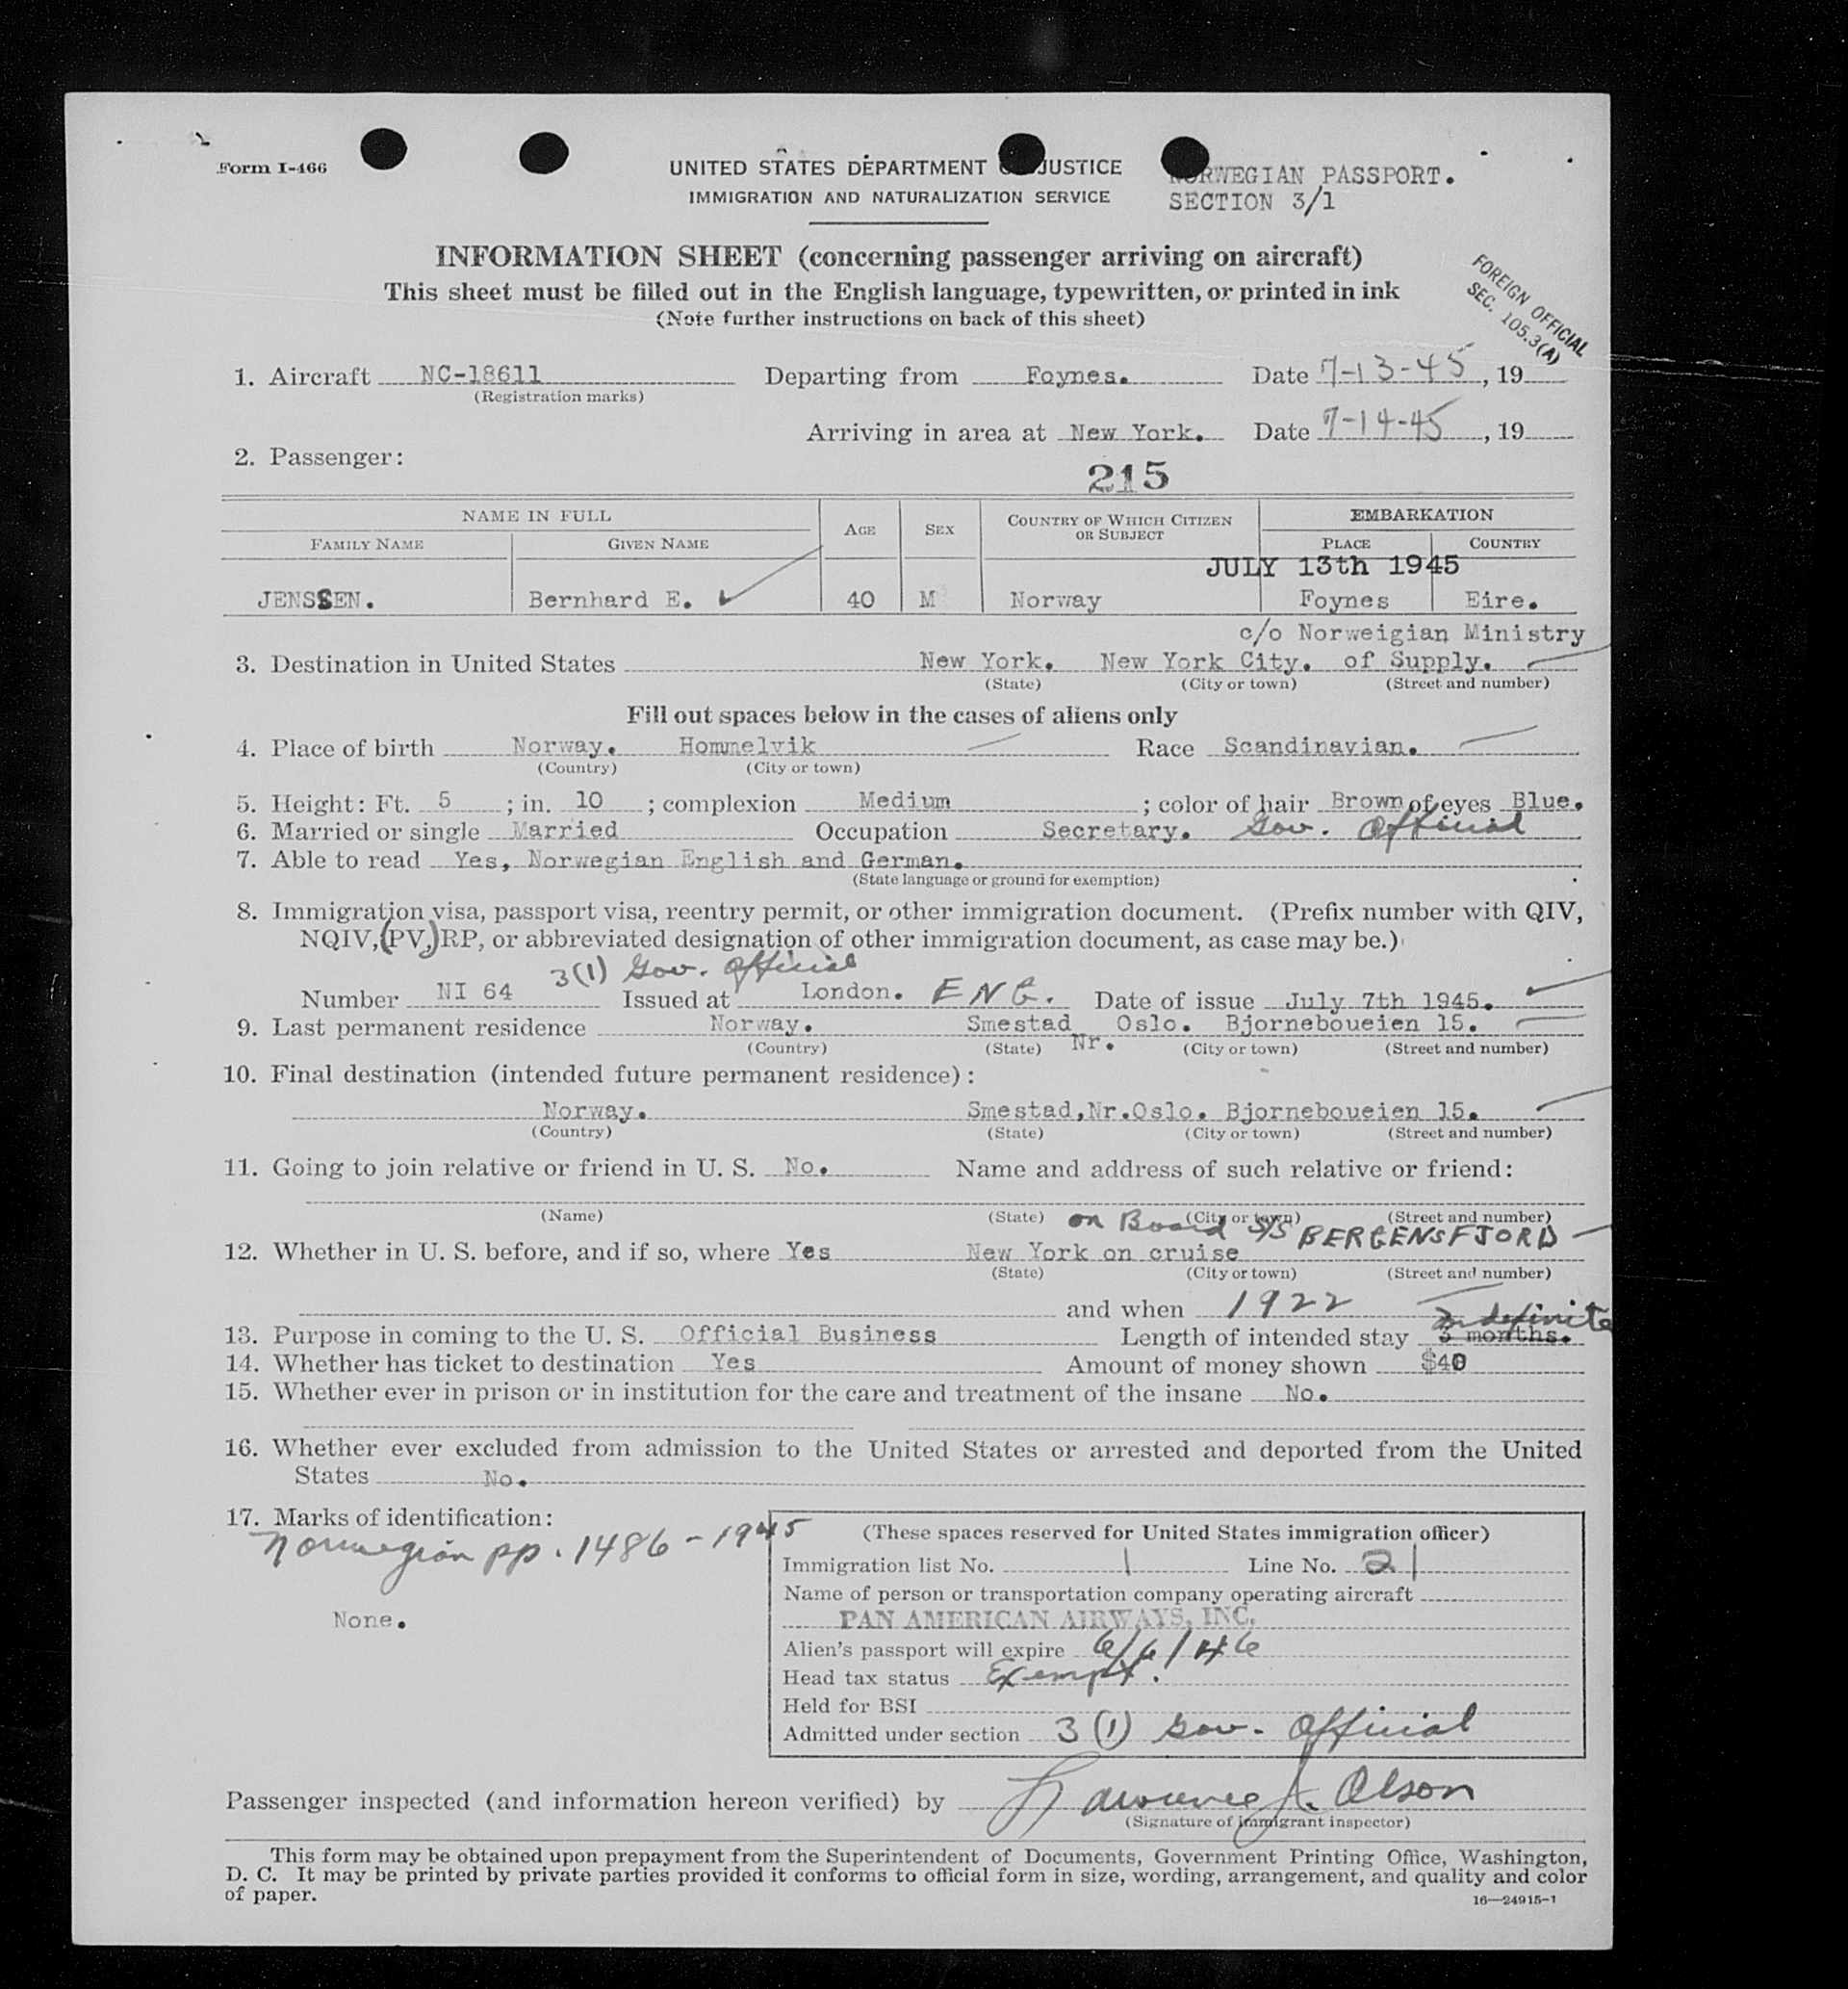 Form I-466
UNITED STATES DEPARTMENT JUSTICE
IMMIGRATION AND NATURALIZATION SERVICE
NORWEGIAN PASSPORT.
SECTION 3/1
INFORMATION SHEET (concerning passenger arriving on aircraft)
This sheet must be filled out in the English language, typewritten, or printed in ink
(Note further instructions on back of this sheet)
FOREIGN OFFICIAL
SEC. 105.3(A)
1. Aircraft NC-18611 Departing from Foynes. Date 7-13-45, 19
(Registration marks)
Arriving in area at New York. Date 7-14-45, 19
2. Passenger:
215
NAME IN FULL AGE SEX COUNTRY OF WHICH CITIZEN OR SUBJECT EMBARKATION
FAMILY NAME GIVEN NAME PLACE COUNTRY
JULY 13th 1945
JENSSEN. Bernhard E. 40 M Norway Foynes Eire.
c/o Norweigian Ministry
3. Destination in United States New York. New York City. of Supply.
(State) (City or town) (Street and number)
Fill out spaces below in the cases of aliens only
4. Place of birth Norway. Hommelvik Race Scandinavian.
(Country) (City or town)
5. Height: Ft. 5 ; in. 10 ; complexion Medium ; color of hair Brown of eyes Blue.
6. Married or single Married Occupation Secretary. Gov. Official
7. Able to read Yes, Norwegian English and German.
(State language or ground for exemption)
8. Immigration visa, passport visa, reentry permit, or other immigration document. (Prefix number with QIV,
NQIV, (PV,) RP, or abbreviated designation of other immigration document, as case may be.)
3(1) Gov. Official
Number NI 64 Issued at London. ENG. Date of issue July 7th 1945.
9. Last permanent residence Norway. Smestad Oslo. Bjorneboueien 15.
(Country) (State) Nr. (City or town) (Street and number)
10. Final destination (intended future permanent residence):
Norway. Smestad, Nr. Oslo. Bjorneboueien 15.
(Country) (State) (City or town) (Street and number)
11. Going to join relative or friend in U. S. No. Name and address of such relative or friend:
(Name) (State) (City or town) (Street and number)
on Board S/S BERGENSFJORD
12. Whether in U. S. before, and if so, where Yes New York on cruise
(State) (City or town) (Street and number)
and when 1922
Indefinite
13. Purpose in coming to the U. S. Official Business Length of intended stay 3 months.
14. Whether has ticket to destination Yes Amount of money shown $40
15. Whether ever in prison or in institution for the care and treatment of the insane No.
16. Whether ever excluded from admission to the United States or arrested and deported from the United
States No.
17. Marks of identification:
Norwegian pp. 1486-1945
None.
(These spaces reserved for United States immigration officer)
Immigration list No. 1 Line No. 21
Name of person or transportation company operating aircraft
PAN AMERICAN AIRWAYS, INC.
Alien's passport will expire 6/6/46
Head tax status Exempt.
Held for BSI
Admitted under section 3(1) Gov. Official
Passenger inspected (and information hereon verified) by Lawrence J. Olson
(Signature of immigrant inspector)
This form may be obtained upon prepayment from the Superintendent of Documents, Government Printing Office, Washington,
D. C. It may be printed by private parties provided it conforms to official form in size, wording, arrangement, and quality and color
of paper.
16—24915-1